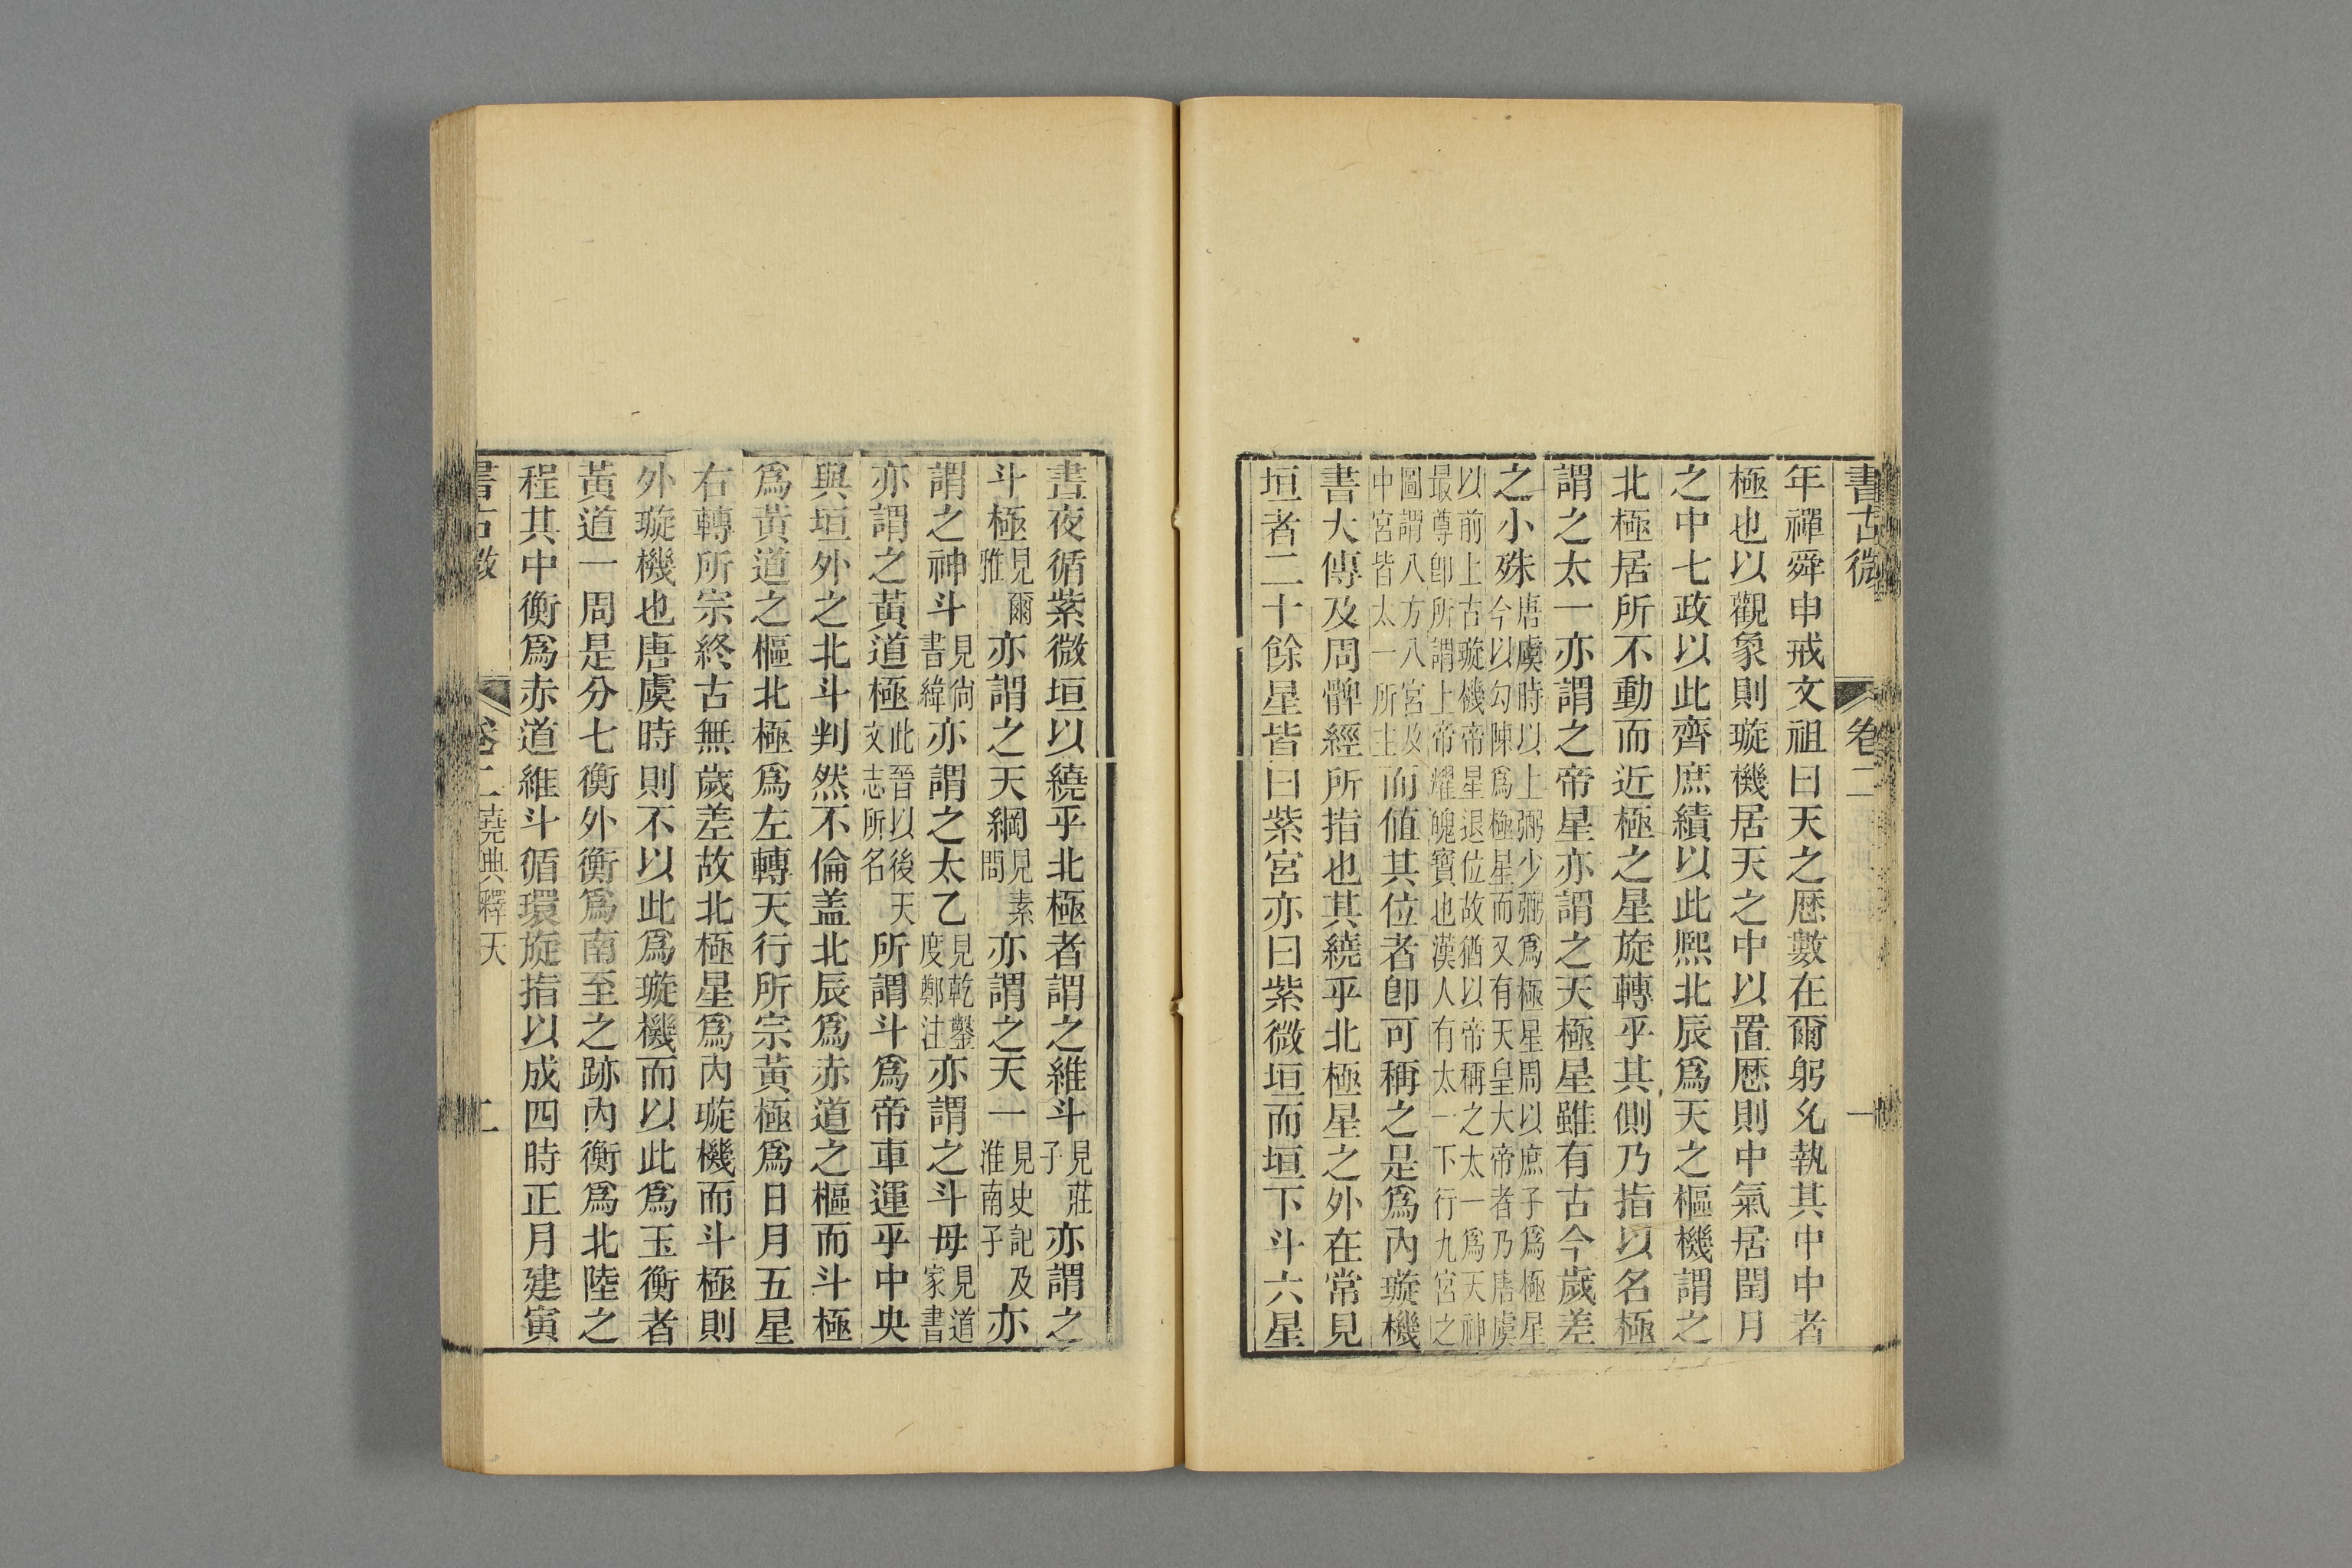 書古微 卷二 一
年禪舜申戒文祖曰天之厯數在爾躬允執其中中者
極也以觀象則璇機居天之中以置厯則中氣居閏月
之中七政以此齊庶績以此熙北辰爲天之樞機謂之
北極居所不動而近極之星旋轉乎其側乃指以名極
謂之太一亦謂之帝星亦謂之天極星雖有古今歲差
之小殊唐虞時以上弼少弼爲極星周以庶子爲極星今以勾陳爲極星而又有天皇大帝者乃唐虞
以前上古璇機帝星退位故猶以帝稱之太一爲天神最尊卽所謂上帝耀魄寶也漢人有太一下行九宮之
圖謂八方八宮及中宮皆太一所主而値其位者卽可稱之是爲內璇機
書大傳及周髀經所指也其繞乎北極星之外在常見
垣者二十餘星皆曰紫宮亦曰紫微垣而垣下斗六星
晝夜循紫微垣以繞乎北極者謂之維斗見莊子亦謂之
斗極見爾雅亦謂之天綱見素問亦謂之天一見史記及淮南子亦
謂之神斗見尙書緯亦謂之太乙見乾鑿度鄭注亦謂之斗母見道家書
亦謂之黃道極此晉以後天文志所名所謂斗爲帝車運乎中央
與垣外之北斗判然不倫盖北辰爲赤道之樞而斗極
爲黃道之樞北極爲左轉天行所宗黃極爲日月五星
右轉所宗終古無歲差故北極星爲內璇機而斗極則
外璇機也唐虞時則不以此爲璇機而以此爲玉衡者
黃道一周是分七衡外衡爲南至之跡內衡爲北陸之
程其中衡爲赤道維斗循環旋指以成四時正月建寅
書古微 卷二 堯典釋天 二